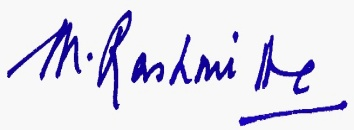 M. Rashmi De